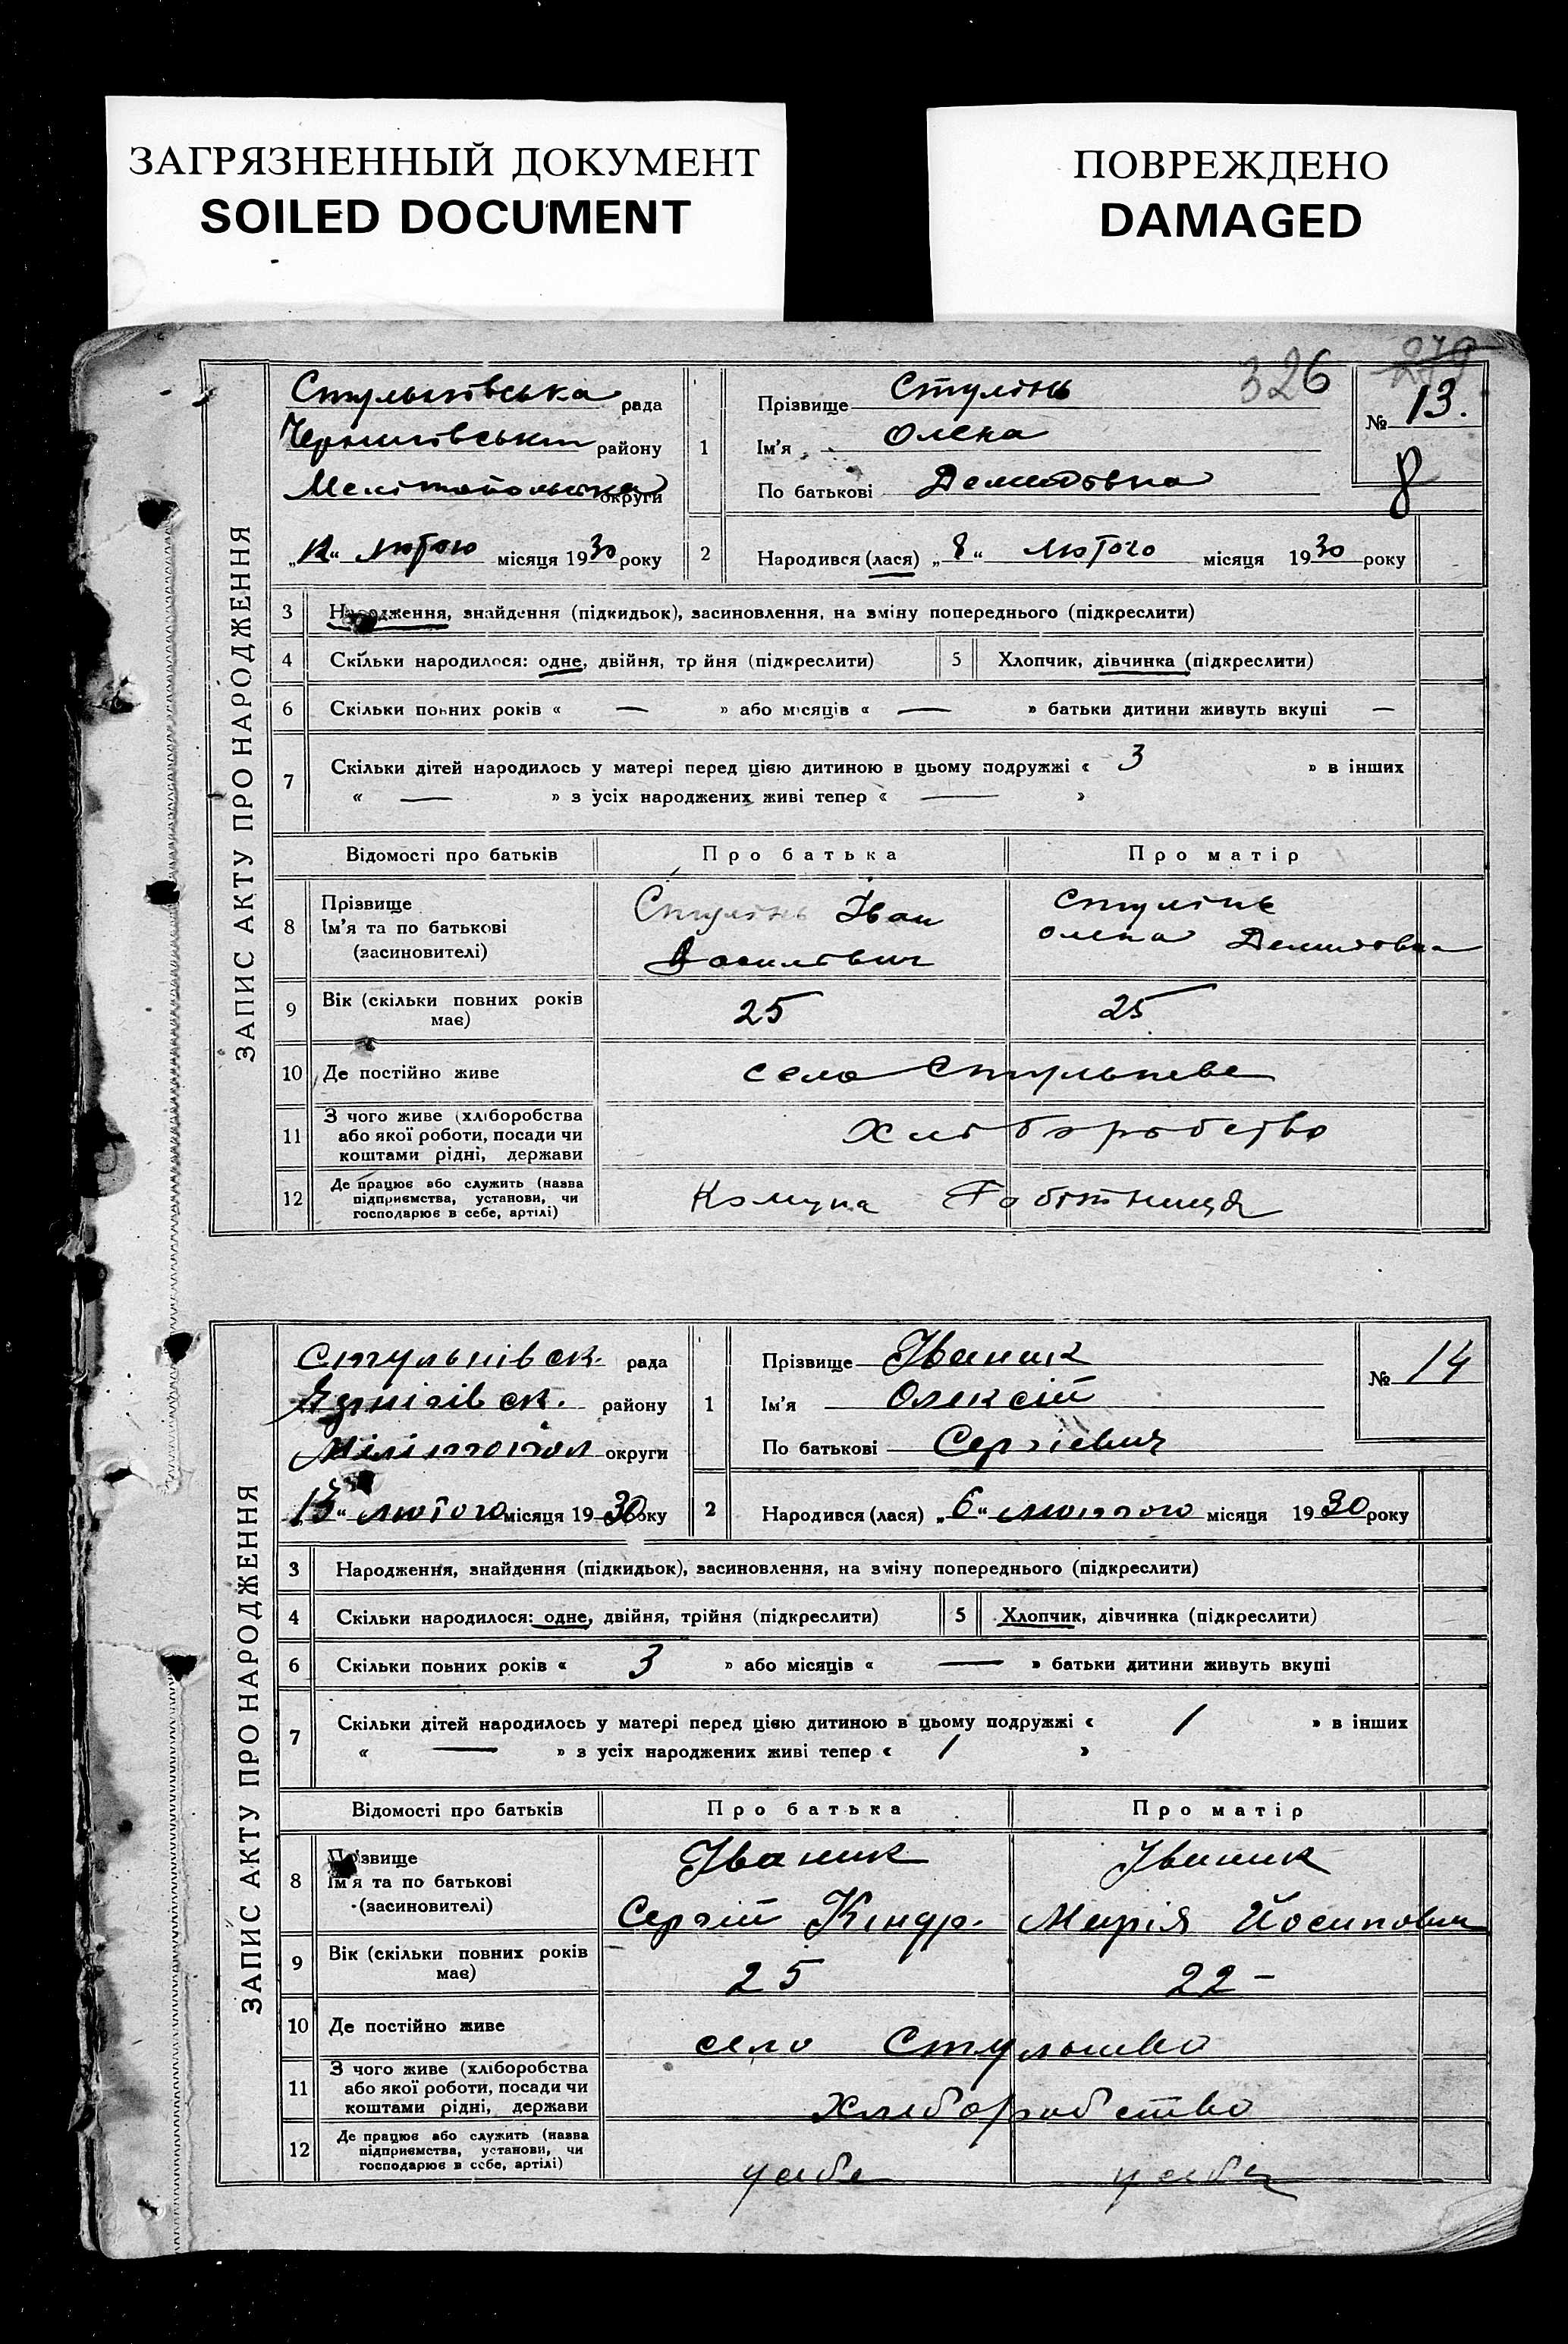 ЗАГРЯЗНЕННЫЙ ДОКУМЕНТ
SOILED DOCUMENT
ПОВРЕЖДЕНО
DAMAGED
326
ЗАПИС АКТУ ПРО НАРОДЖЕННЯ
Стульнівська рада
Чернигівськ району
Мелітопольська округи
„12“ лютого місяця 1930 року
1 Прізвище Стулінь
Ім'я Олена
По батькові Демидовна
№ 13.
8
2 Народився (лася) „8“ лютого місяця 1930 року
3 Народження, знайдення (підкидьок), засиновлення, на зміну попереднього (підкреслити)
4 Скільки народилося: одне, двійня, трійня (підкреслити) 5 Хлопчик, дівчинка (підкреслити)
6 Скільки повних років « — » або місяців « — » батьки дитини живуть вкупі —
7 Скільки дітей народилось у матері перед цією дитиною в цьому подружжі « 3 » в інших
« — » з усіх народжених живі тепер « — »
Відомості про батьків Про батька Про матір
8 Прізвище
Ім'я та по батькові
(засиновителі)
Стулінь Іван
Василівич
Стулінь
Олена Демидовна
9 Вік (скільки повних років
має)
25 25
10 Де постійно живе село Стульневе
11 З чого живе (хліборобства
або якої роботи, посади чи
коштами рідні, держави
Хліборобство
12 Де працює або служить (назва
підприємства, установи, чи
господарює в себе, артілі)
Комуна Робітниця
ЗАПИС АКТУ ПРО НАРОДЖЕННЯ
Стульнівськ. рада
Чернігівськ. району
Мілітопол округи
„13“ лютого місяця 1930 року
1 Прізвище Іваник
Ім'я Олексій
По батькові Сергіевич
№ 14
2 Народився (лася) „6“ лютого місяця 1930 року
3 Народження, знайдення (підкидьок), засиновлення, на зміну попереднього (підкреслити)
4 Скільки народилося: одне, двійня, трійня (підкреслити) 5 Хлопчик, дівчинка (підкреслити)
6 Скільки повних років « 3 » або місяців « — » батьки дитини живуть вкупі
7 Скільки дітей народилось у матері перед цією дитиною в цьому подружжі « 1 » в інших
« — » з усіх народжених живі тепер « 1 »
Відомості про батьків Про батька Про матір
8 Прізвище
Ім'я та по батькові
(засиновителі)
Іваник
Сергій Кіндр.
Іваник
Марія Йосипович
9 Вік (скільки повних років
має)
25 22-
10 Де постійно живе село Стульнево
11 З чого живе (хліборобства
або якої роботи, посади чи
коштами рідні, держави
Хлеборобство
12 Де працює або служить (назва
підприємства, установи, чи
господарює в себе, артілі)
у себе у себе